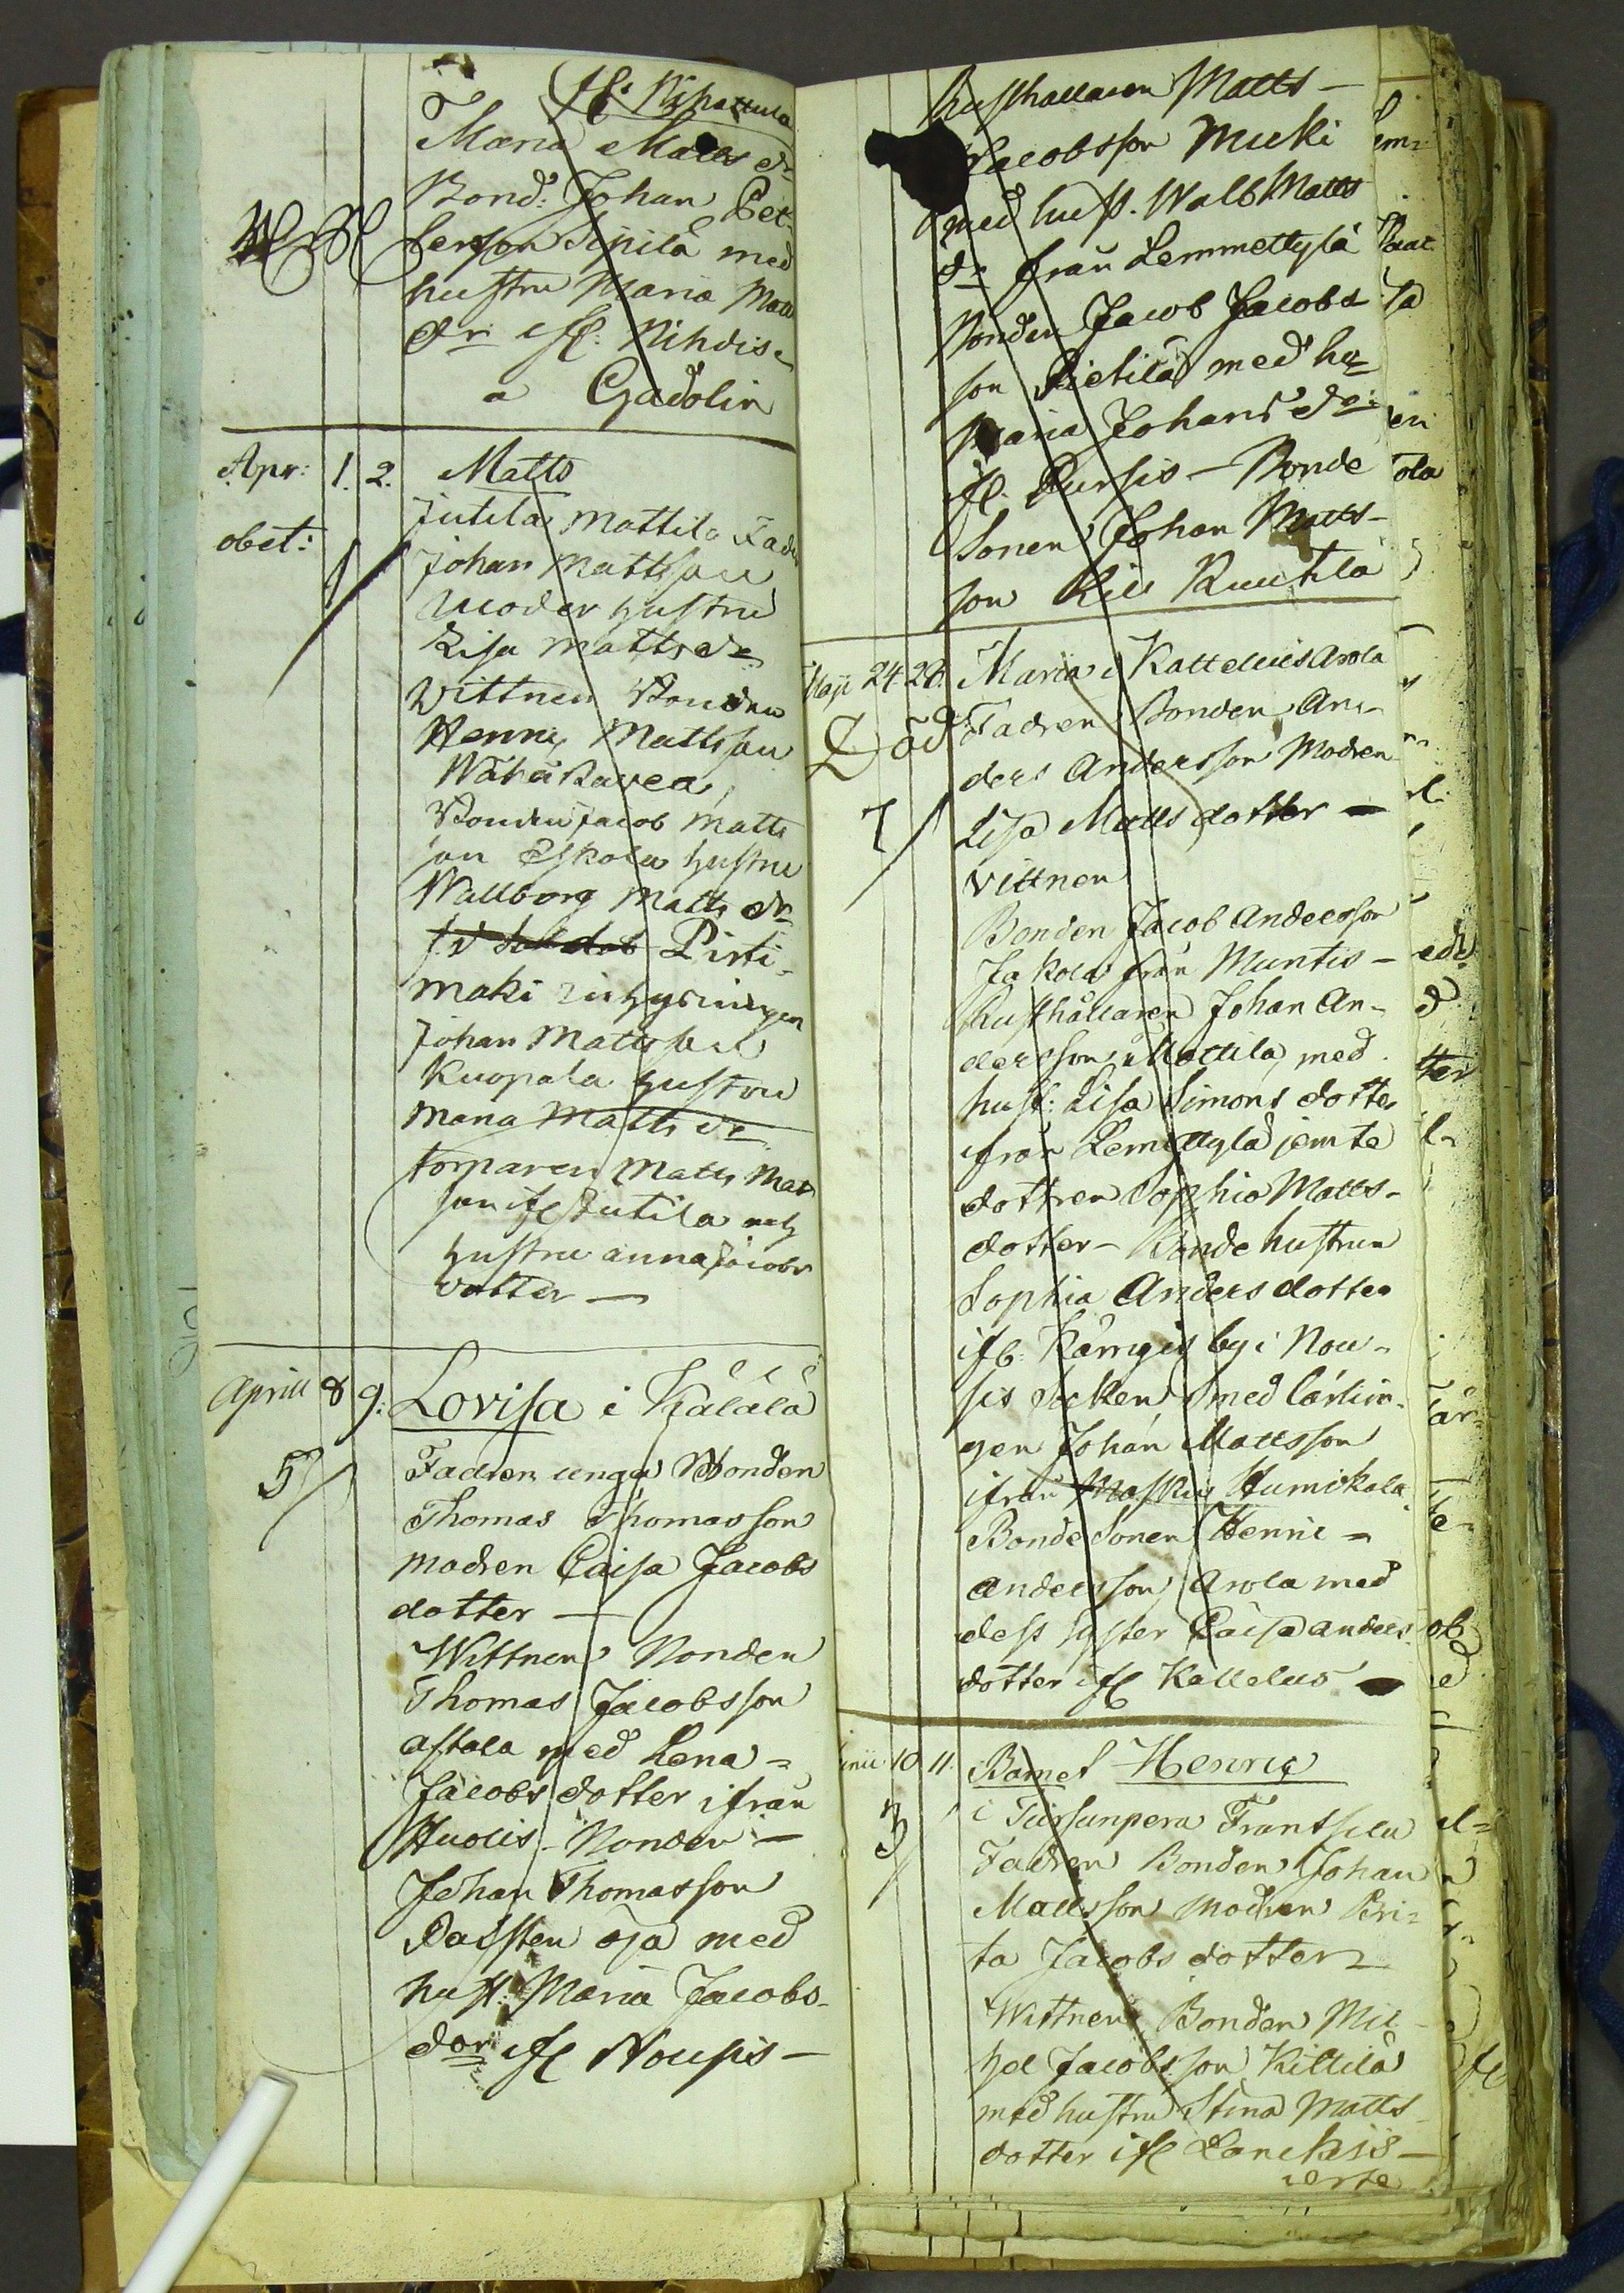 Maria Matts dr
Bond: Johan Pet
ersson Sipilä med
hustru Maria Matts
dr ifl: Nihdis
a Gadolin
Apr: 1. 2. Matts
obet:
Jutila Mattila Fadr
Johan Mattsson
moder hustru
Lisa Mattsdr
Wittnen Bonden
Henric Mattsson
Bonden Jacob Matts
son Eskola hustru
Wallborg Matts dr
Pirti-
mäki inhysingen
Johan Mattsson
Kuopala hustru
Maria Matts dr
torparen Matts Mats
son ifl Jutila och
hustru Anna Jacobs
dotter —
Aprill 8 9. Lovisa i Kälälä
5
Fadren unga Bonden
Thomas Thomasson
modren Caisa Jacobs
dotter —
Wittnen Bonden
Thomas Jacobsson
astala med Lena =
Jacobs dotter ifrån
Huolis - Bonden —
Johan Thomasson
Daisten oja med
hust: Maria Jacobs-
dor ifl Nousis —
Rusthållaren Matts —
Jacobsson Mucki
med hust. Walb Matts
dr från Lemmettylä
Bonden Jacob Jacobs
son Pietilä med hu=
Maria Johans dr
ifl. Pursis — Bonde
Sonen Johan Matts-
son Kuutila
Maji 24 28. Maria i Kattelus Arola
Död
Fadren Bonden An-
ders Andersson Modren
7
Lisa Matts dotter —
Vittnen
Bonden Jacob Andersson
Jakola från Muntis —
Rusthållaren Johan An-
dersson Mattila, med
hust: Lisa Simons dotter
ifrån Lemettylä jemte
dottren Sophia Matts-
dotter — Bonde hustrun
Sophia Anders dotter
ifl. Kärmgis by i Nou-
sis Socken med lärlin-
gen Johan Mattsson
ifrån Masku Humikala
BondeSonen Henric =
Andersson Arola med
dess syster Caisa Anders
dotter ifl Kattelus —
Junii 10 11. Barnet Henric
3
i Tursunpera Frantsila
Fadren Bonden Johan
Mattsson modren Bri=
ta Jacobs dotter —
Wittnen Bonden Mic
hel Jacobsson Kittilä
med hustru Stina Matts
dotter ifl Lanckis —